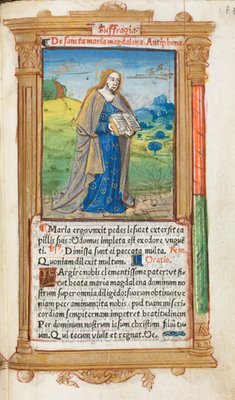 Suffragia
De sancta maria magdalena. Antiphona
Maria ergo vnxit pedes iesu et extersit ca
pillis suis: & domus impleta est ex odore vngue
ti. Dimissa sunt ei peccata multa.
Quoniam dilexit multum. Oratio.
Largire nobis clementissime pater: vt sic
ut beata maria magdalena dominum no
strum super omnia diligendo: suorum obtinuit ve
niam peccaminum: ita nobis apud tuam miseri
cordiam sempiternam impetret beatitudinem
Per dominum nostrum iesum christum filiū tu
um. Qui tecum viuit et regnat.